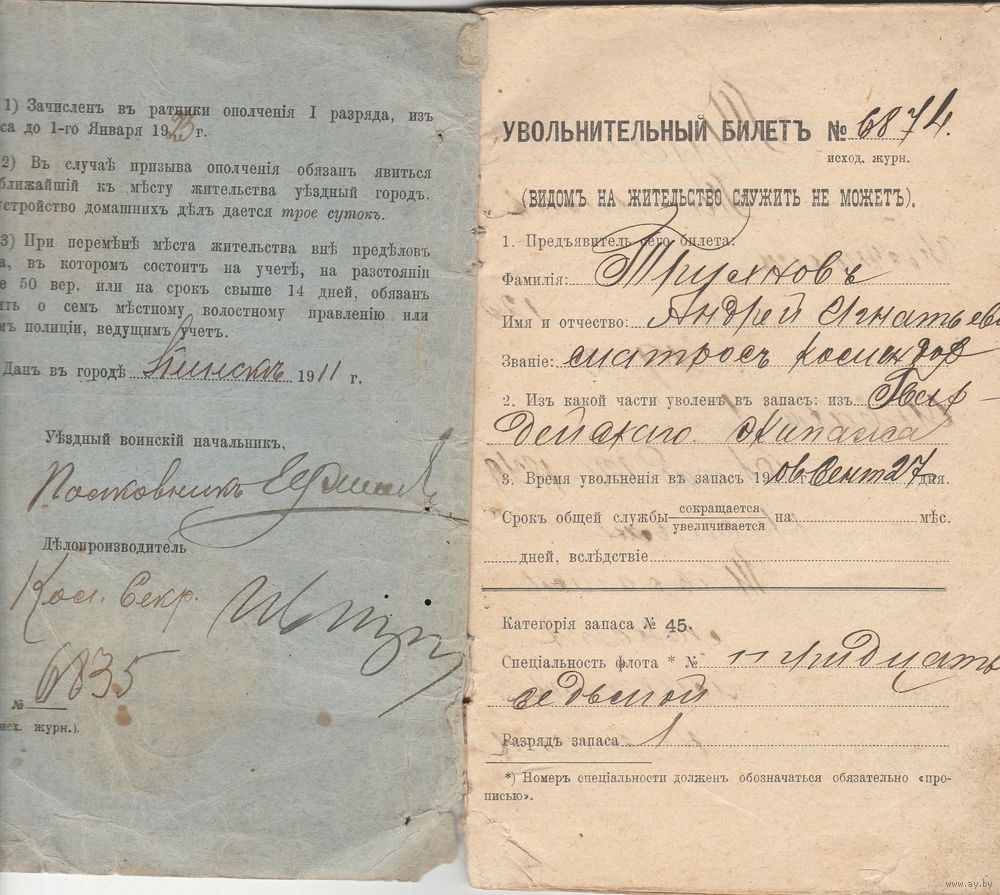 1) Зачисленъ въ ратники ополченія I разряда, изъ
са до 1-го Января 1925 г.
2) Въ случаѣ призыва ополченія обязан явиться
ближайшій къ мѣсту жительства уѣздный город.
устройство домашнихъ дѣл дается трое сутокъ.
3) При перемѣнѣ мѣста жительства внѣ предѣлов
а, въ котором состоитъ на учетѣ, на разстояніи
е 50 вер. или на срокъ свыше 14 дней, обязан
ить о семъ мѣстному волостному правленію или
мъ полиціи, ведущимъ учет.
Данъ въ городѣ 1911 г.
Уѣздный воинскій начальникъ,
Полковникъ
Дѣлопроизводитель
Кол. Секр.
6835
№
исх. журн.).
УВОЛЬНИТЕЛЬНЫЙ БИЛЕТЪ № 6874
исход. журн.
(ВИДОМЪ НА ЖИТЕЛЬСТВО СЛУЖИТЬ НЕ МОЖЕТЪ).
1. Предъявитель сего билета:
Фамилія:
Имя и отчество: Андрей Игнатьев
Званіе: матросъ
2. Изъ какой части уволен въ запасъ: изъ Гвар-
дейскаго Экипажа
3. Время увольненія въ запасъ 1906 г Сент 27 дня.
Срокъ общей службы сокращается увеличивается на мѣс.
дней, вслѣдствіе
Категорія запаса № 45.
Спеціальность флота * № тридцать
седьмой
Разрядъ запаса 1
*) Номеръ спеціальности долженъ обозначаться обязательно «про-
писью».
www.ay.by